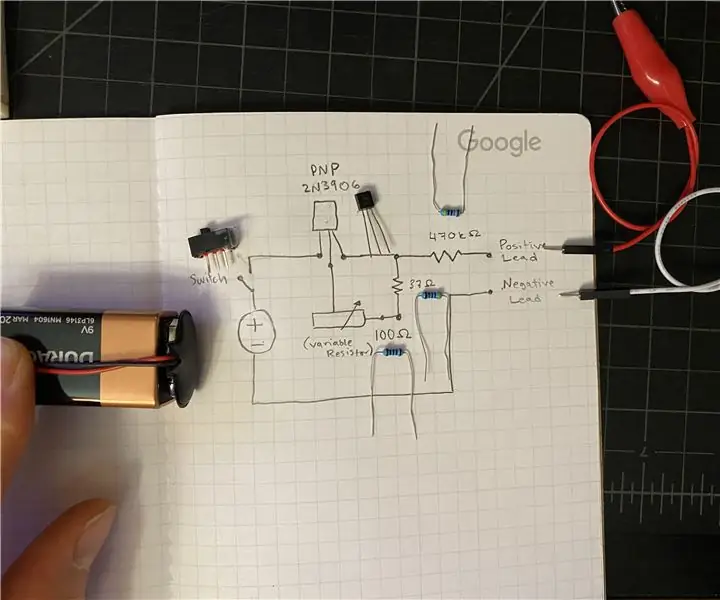 Google
PNP
2N3906
470kΩ
Positive
Lead
Switch
33Ω
Negative
Lead
+
−
(variable
Resistor)
100Ω
9V
6LP3146 MN1604 MAR 20
DURAC
7